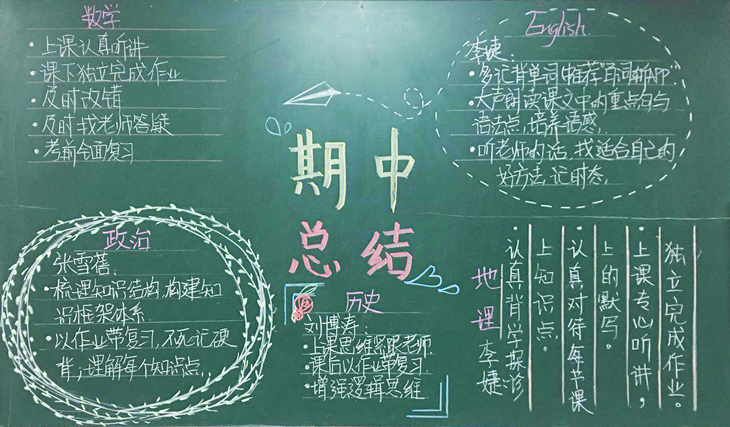 数学
·上课认真听讲
·课下独立完成作业
·及时改错
·及时找老师答疑
·考前全面复习
English
李婕：
·多记背单词(推荐"百词斩"APP)
·大声朗读课文中的重点句与
语法点,培养语感.
·听老师的话,找适合自己的
好方法,记时态.
期中
总结
政治
张雪蓓：
·梳理知识结构,构建知
识框架体系
·以作业带复习,不死记硬
背;理解每个知识点.
历史
刘博涛：
·上课思维紧跟老师
·课后以作业带复习
·增强逻辑思维
地理
李婕：
·认真背学探诊
上知识点。
·认真对待每节课
上的默写。
·上课专心听讲，
独立完成作业。